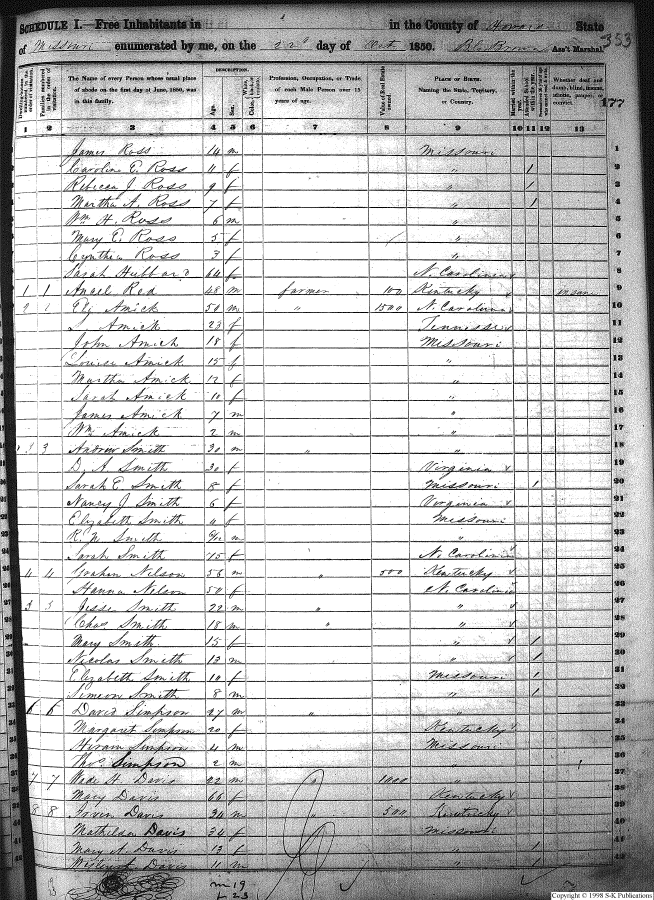 SCHEDULE I.—Free Inhabitants in in the County of Howard State
of Missouri enumerated by me, on the 22d day of Oct 1850. Ass't Marshal.
353
177
DESCRIPTION.
The Name of every Person whose usual place of abode on the first day of June, 1850, was in this family. Age. Sex. Profession, Occupation, or Trade of each Male Person over 15 years of age. Value of Real Estate owned. PLACE OF BIRTH. Naming the State, Territory, or Country. Married within the year. Whether deaf and dumb, blind, insane, idiotic, pauper, or convict.
1 2 3 4 5 6 7 8 9 10 11 12 13
James Ross 14 m Missouri 1
Caroline E. Ross 11 f " 1 2
Rebecca J Ross 9 f " 1 3
Martha A. Ross 7 f " 1 4
Wm H. Ross 6 m " 5
Mary E. Ross 5 f " 6
Cynthia Ross 3 f " 7
Sarah Hubbard 64 f N. Carolina 8
1 1 Red 48 m farmer 100 Kentucky 9
2 Amick 50 m " 1500 N. Carolina 10
Amick 23 f Tennessee 11
John Amick 18 f Missouri 12
Louisa Amick 15 f " 13
Martha Amick 12 f " 14
Sarah Amick 10 f " 15
James Amick 7 m " 16
Wm Amick 2 m " 17
3 3 Andrew Smith 30 m " " 18
D. A Smith 30 f Virginia 19
Sarah E Smith 8 f Missouri 1 20
Nancy J Smith 6 f Virginia 21
Elizabeth Smith f Missouri 22
Smith m " 23
Sarah Smith 75 f N. Carolina 24
4 4 Nelson 56 m " 500 Kentucky 25
Hanna Nelson 50 f N. Carolina 26
5 5 Jesse Smith 22 m " " 27
Chas Smith 18 m " " 28
Mary Smith 15 f " 1 29
Nicolas Smith 13 m " 1 30
Elizabeth Smith 10 f Missouri 1 31
Simeon Smith 8 m " 1 32
6 6 David Simpson 27 m " " 33
Margaret Simpson 20 f Kentucky 34
Hiram Simpson 4 m Missouri 35
Thos. Simpson 2 m " 36
7 7 H. Davis 22 m " 1000 " 37
Mary Davis 66 f Kentucky 38
8 8 Davis 34 m " 500 Kentucky 39
Mathilda Davis 34 f Missouri 40
Mary A Davis 13 f " 1 41
Davis 11 m " 1 42
m 19
f 23
Copyright © 1998 S-K Publications